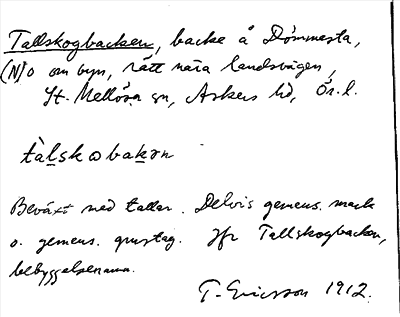 Tallskogbacken, backe å Dömmesta,
(N)o om byn, rätt nära landsvägen,
St. Mellösa sn, Askers hd, Ör. l.
tàlskobakən
Beväxt med tallar. Delvis gemens. mark
o. gemens. grustag. Jfr Tallskogbacken,
bebyggelsenamn.
T. Ericsson 1912.